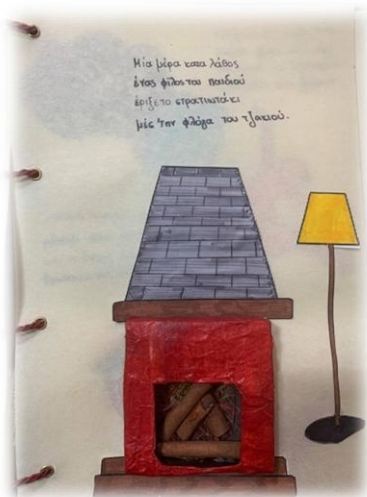 Μία μέρα κατα λάθος
ένας φίλος του παιδιού
έριξε το στρατιωτάκι
μές 'την φλόγα του τζακιού.